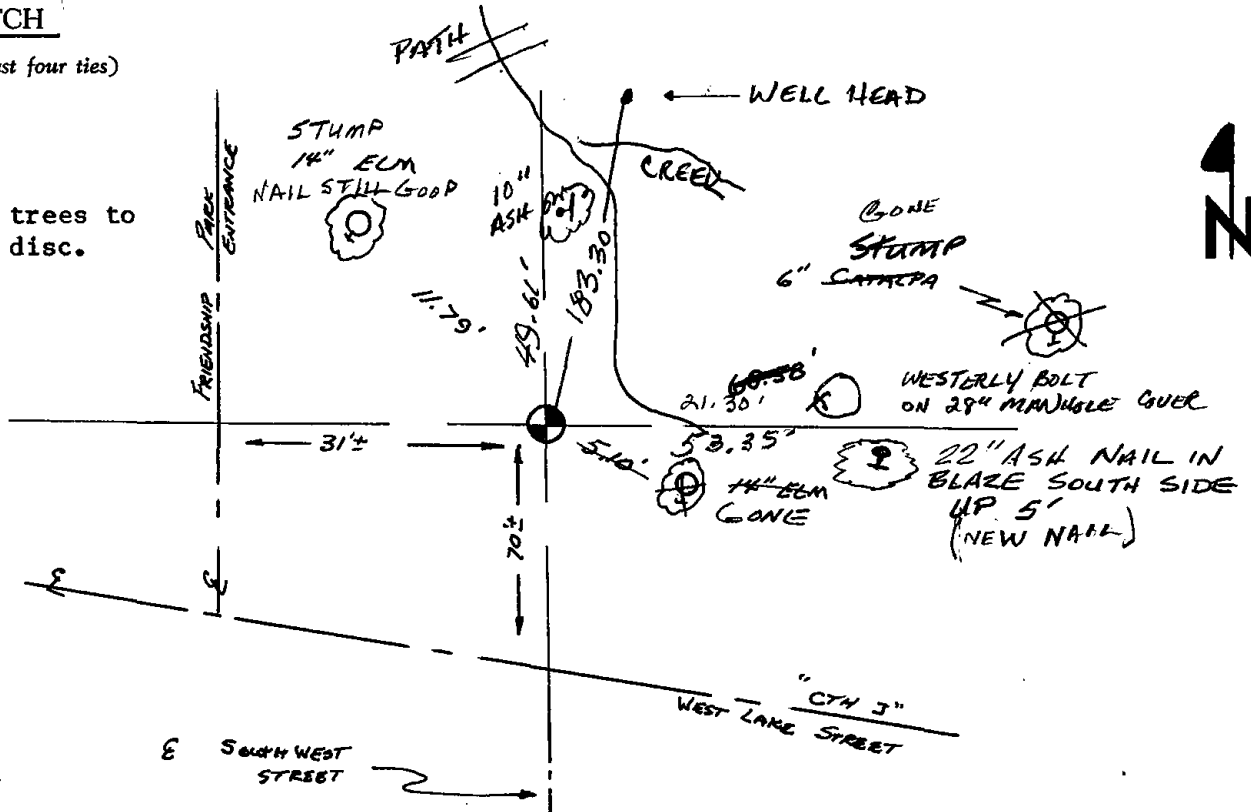 TCH
st four ties)
PATH
WELL HEAD
STUMP
14" ELM
NAIL STILL GOOD
10"
ASH
CREEK
PARK
ENTRANCE
FRIENDSHIP
trees to
disc.
GONE
STUMP
6" CATALPA
N
11.79'
49.61'
183.30
68.58'
21.30'
WESTERLY BOLT
ON 28" MANHOLE COVER
31'±
5.10'
53.35'
14" ELM
GONE
22" ASH NAIL IN
BLAZE SOUTH SIDE
UP 5'
(NEW NAIL)
70'±
"CTH J"
WEST LAKE STREET
SOUTH WEST
STREET